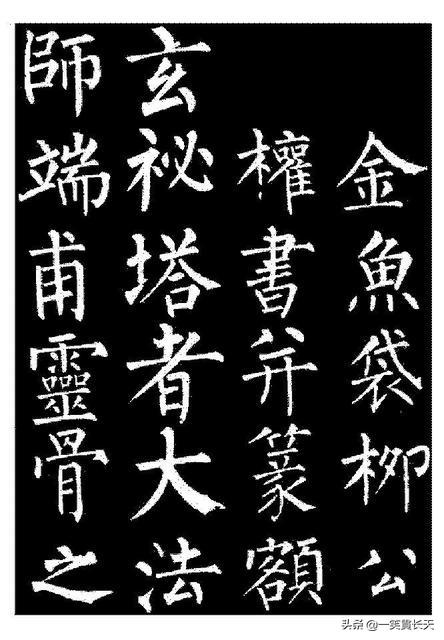 金魚袋柳公
權書并篆額
玄祕塔者大法
師端甫靈骨之
头条 @一笑貫长天